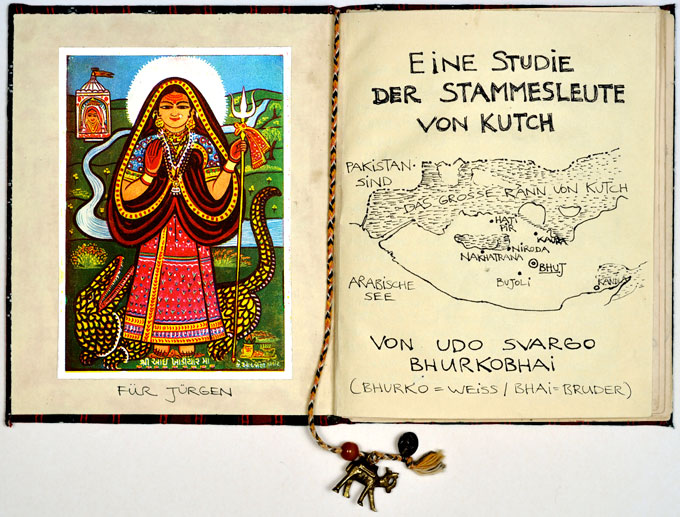 શ્રી આઈ ખોડીયાર માં
FÜR JÜRGEN
EINE STUDIE
DER STAMMESLEUTE
VON KUTCH
PAKISTAN-
SIND
DAS GROSSE RANN VON KUTCH
HAJI
PIR
KAVDA
NIRODA
NAKHATRANA
BHUJ
BUJOLI
ARABISCHE
SEE
VON UDO SVARGO
BHURKOBHAI
(BHURKO = WEISS / BHAI = BRUDER)